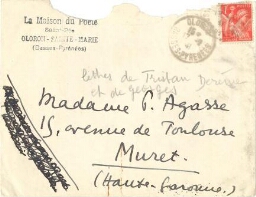 La Maison du Poète
OLORON-SAINTE-MARIE
(Basses-Pyrénées)
lettres de Tristan Derème
et de
Madame P. Agasse
15, avenue de Toulouse
Muret
(Haute-Garonne)